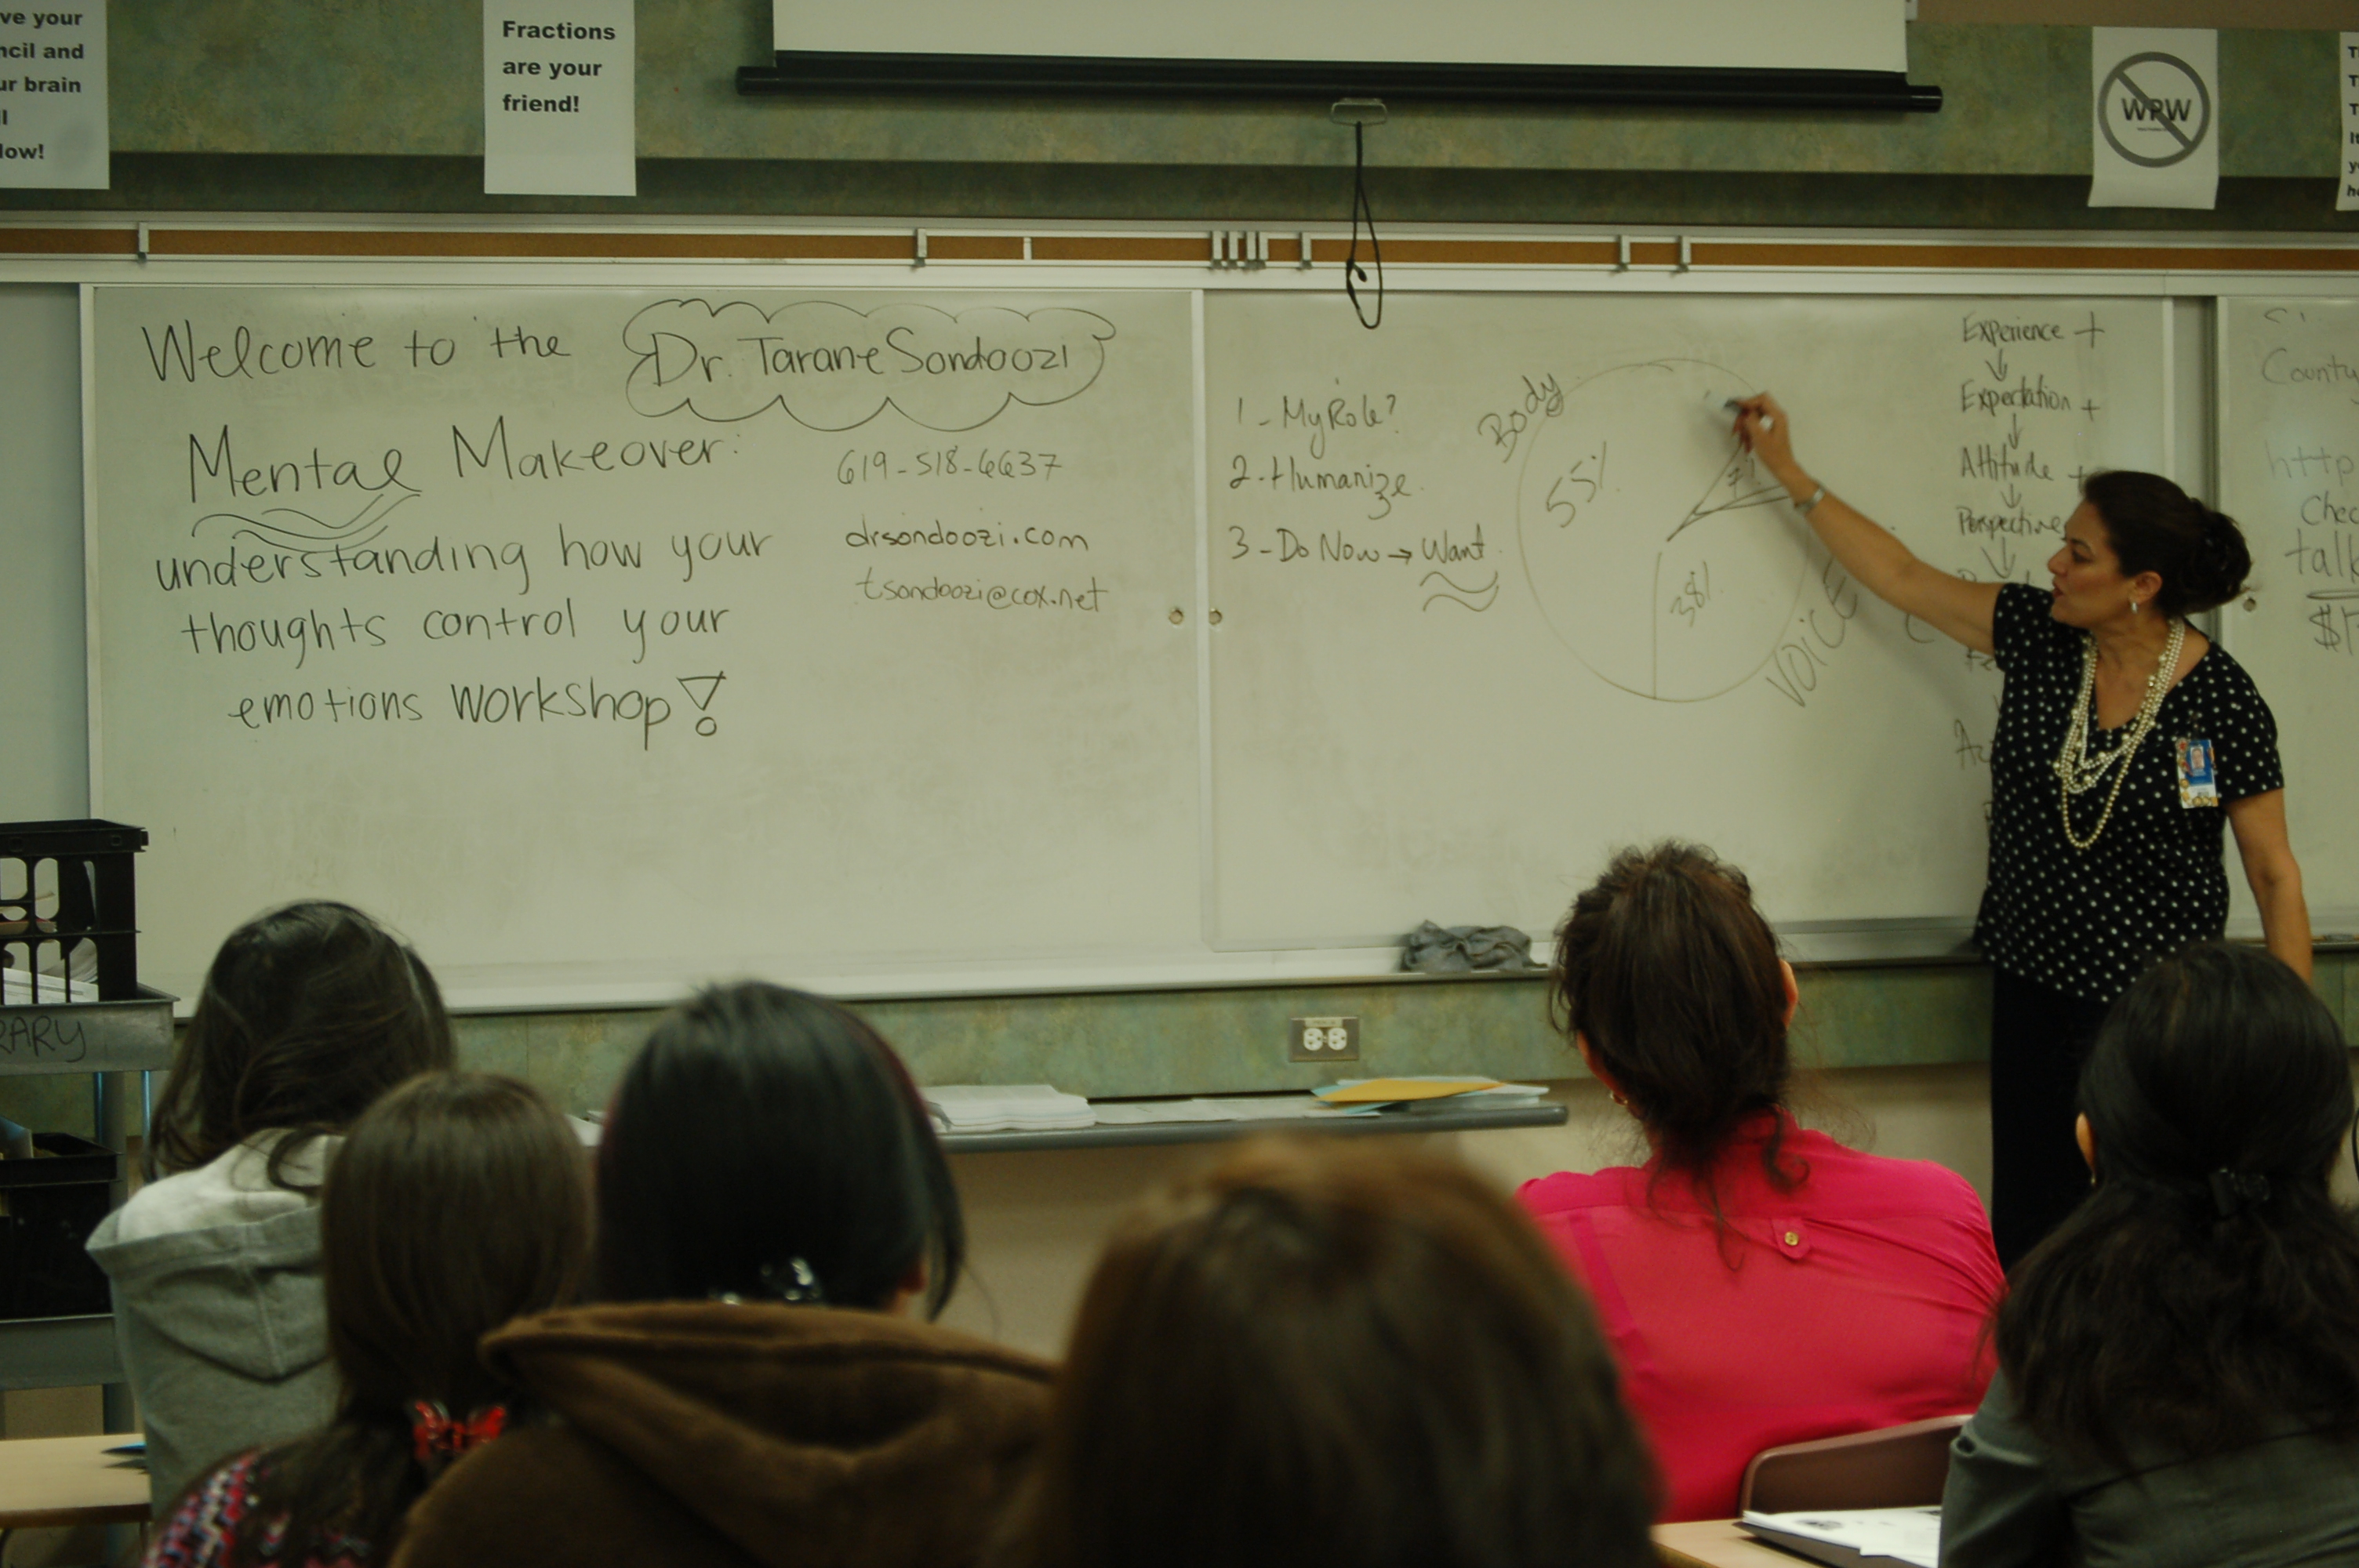 ve your
ncil and
ur brain
low!
Fractions
are your
friend!
WPW
Welcome to the Dr. Tarane Sondoozi
Mental Makeover:
understanding how your
thoughts control your
emotions workshop!
619-518-6637
drsondoozi.com
tsondoozi@cox.net
1 - My Role?
2. Humanize
3 - Do Now → Want
Body
55%
7%
38%
VOICE
Experience +
↓
Expectation +
↓
Attitude +
↓
Perspective
↓
County
http
Chec
talk
RARY